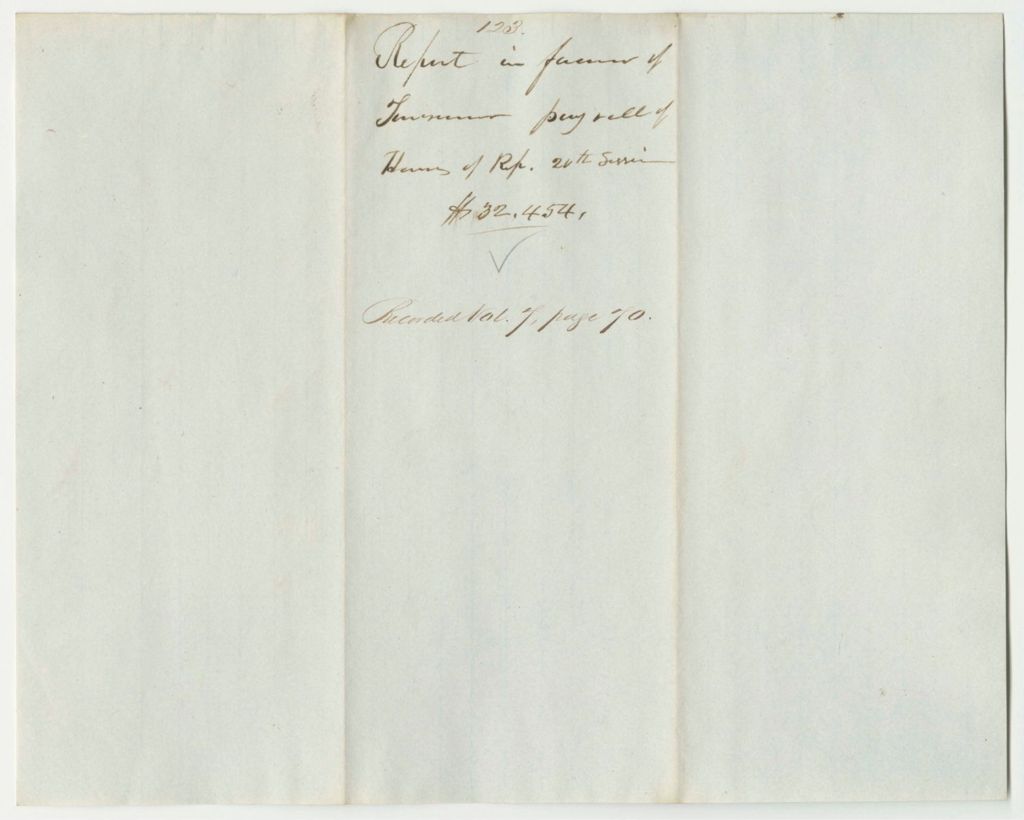 123.
Report in favour of
Treasurer pay roll of
House of Rep. 20th Session
$32.454.
Recorded Vol. 7, page 70.